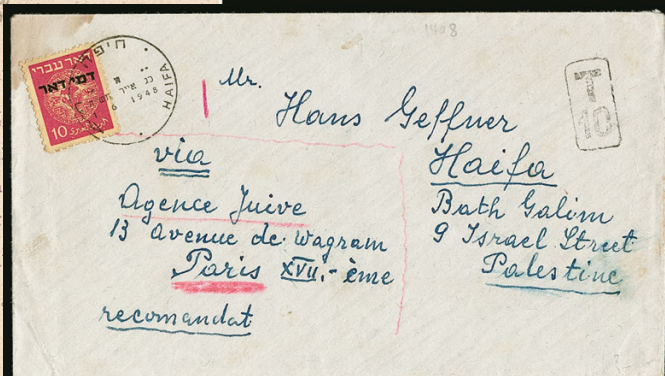 דאר עברי
דמי דאר
10
חיפה
1 6 1948
HAIFA
T
10
Mr.
Hans Geffner
Haifa
Bath Galim
9 Israel Street
Palestine
via
Agence Juive
13 Avenue de Wagram
Paris XVII.-ème
recomandat